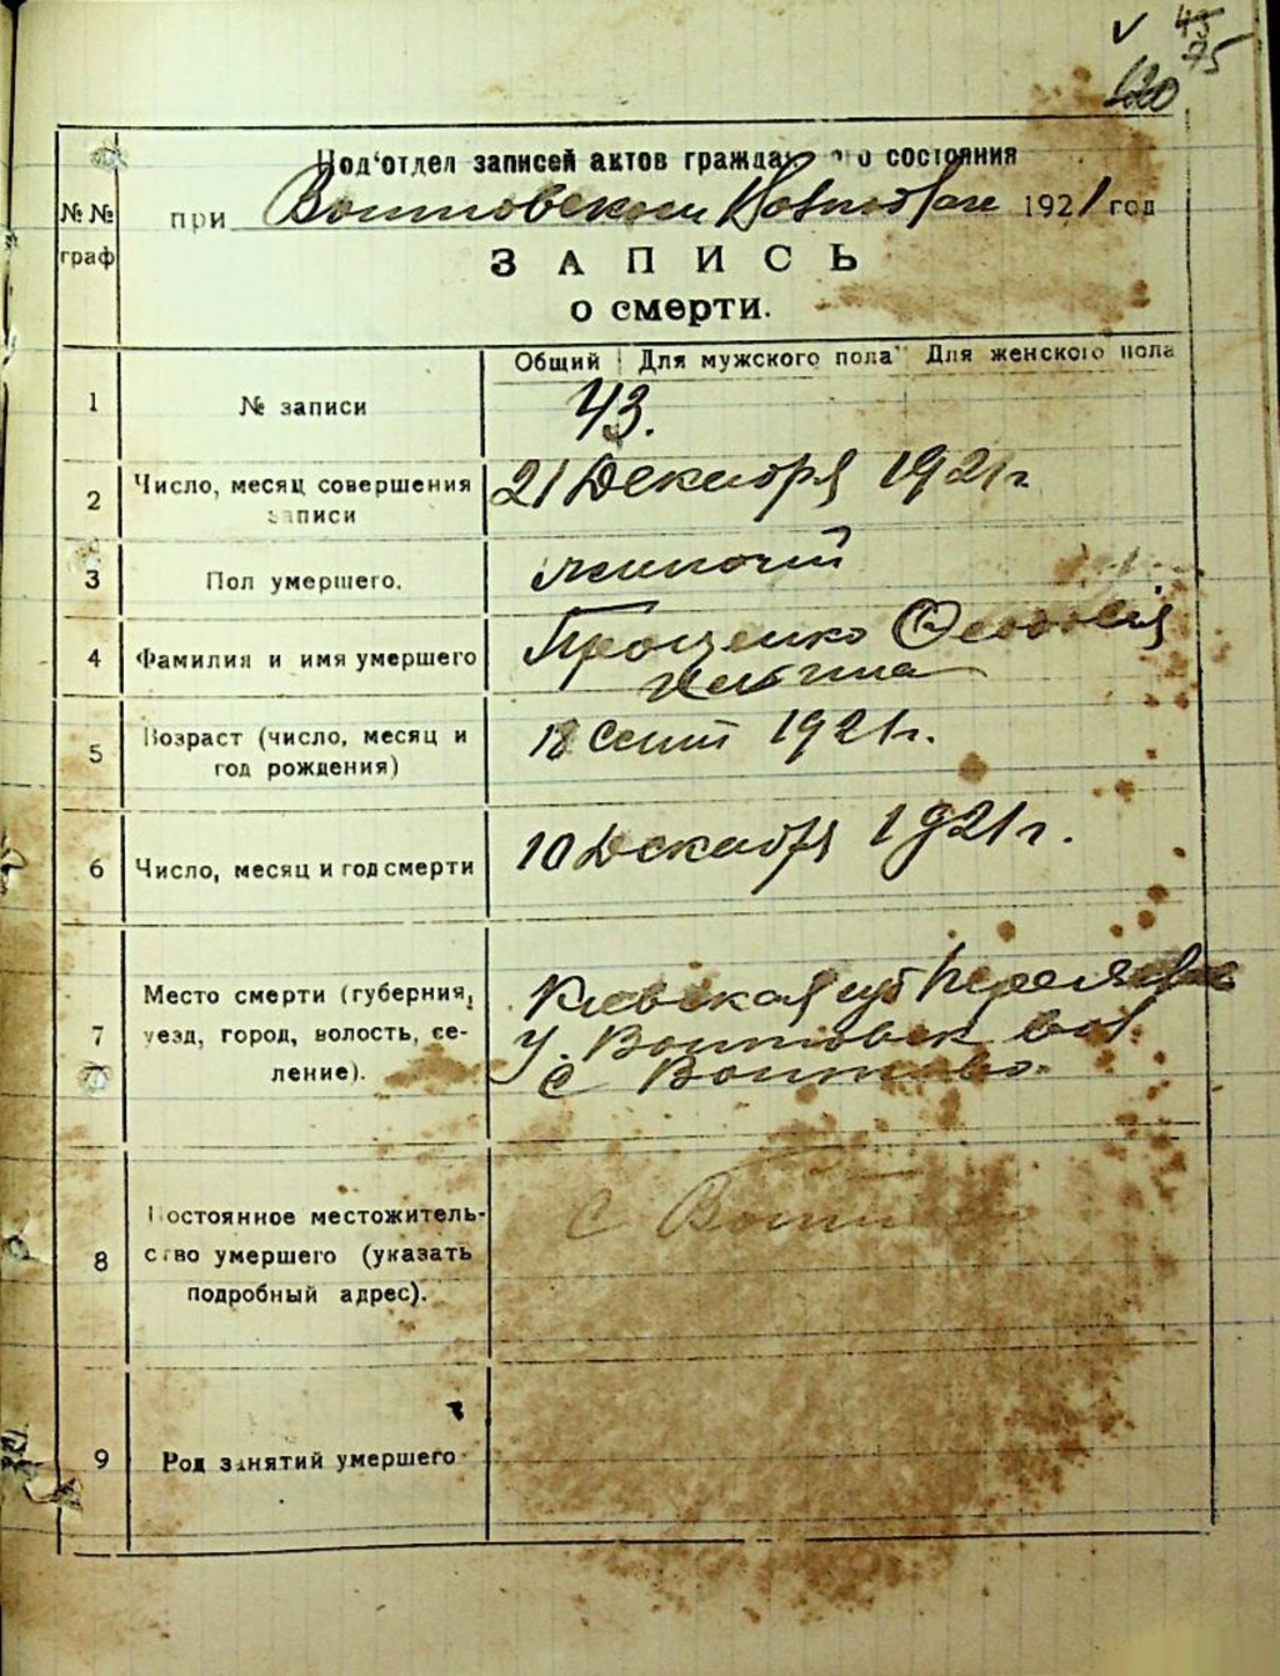 45
75
120
Под'отдел записей актов гражда о состояния
№ № при Воитовском 1921 год
граф
ЗАПИСЬ
о смерти.
Общий Для мужского пола Для женского пола
1 № записи 43.
2 Число, месяц совершения 21 Декабря 1921 г
записи
3 Пол умершего. женский
4 Фамилия и имя умершего Проценко Феодосія
5 Возраст (число, месяц и 18 Сент 1921 г.
год рождения)
6 Число, месяц и год смерти 10 Декабря 1921 г.
7 Место смерти (губерния, Киевская губ Переяслав
уезд, город, волость, се- У. Воитовск вол
ление). с Воитово.
8 Постоянное местожитель- с
ство умершего (указать
подробный адрес).
9 Род занятий умершего